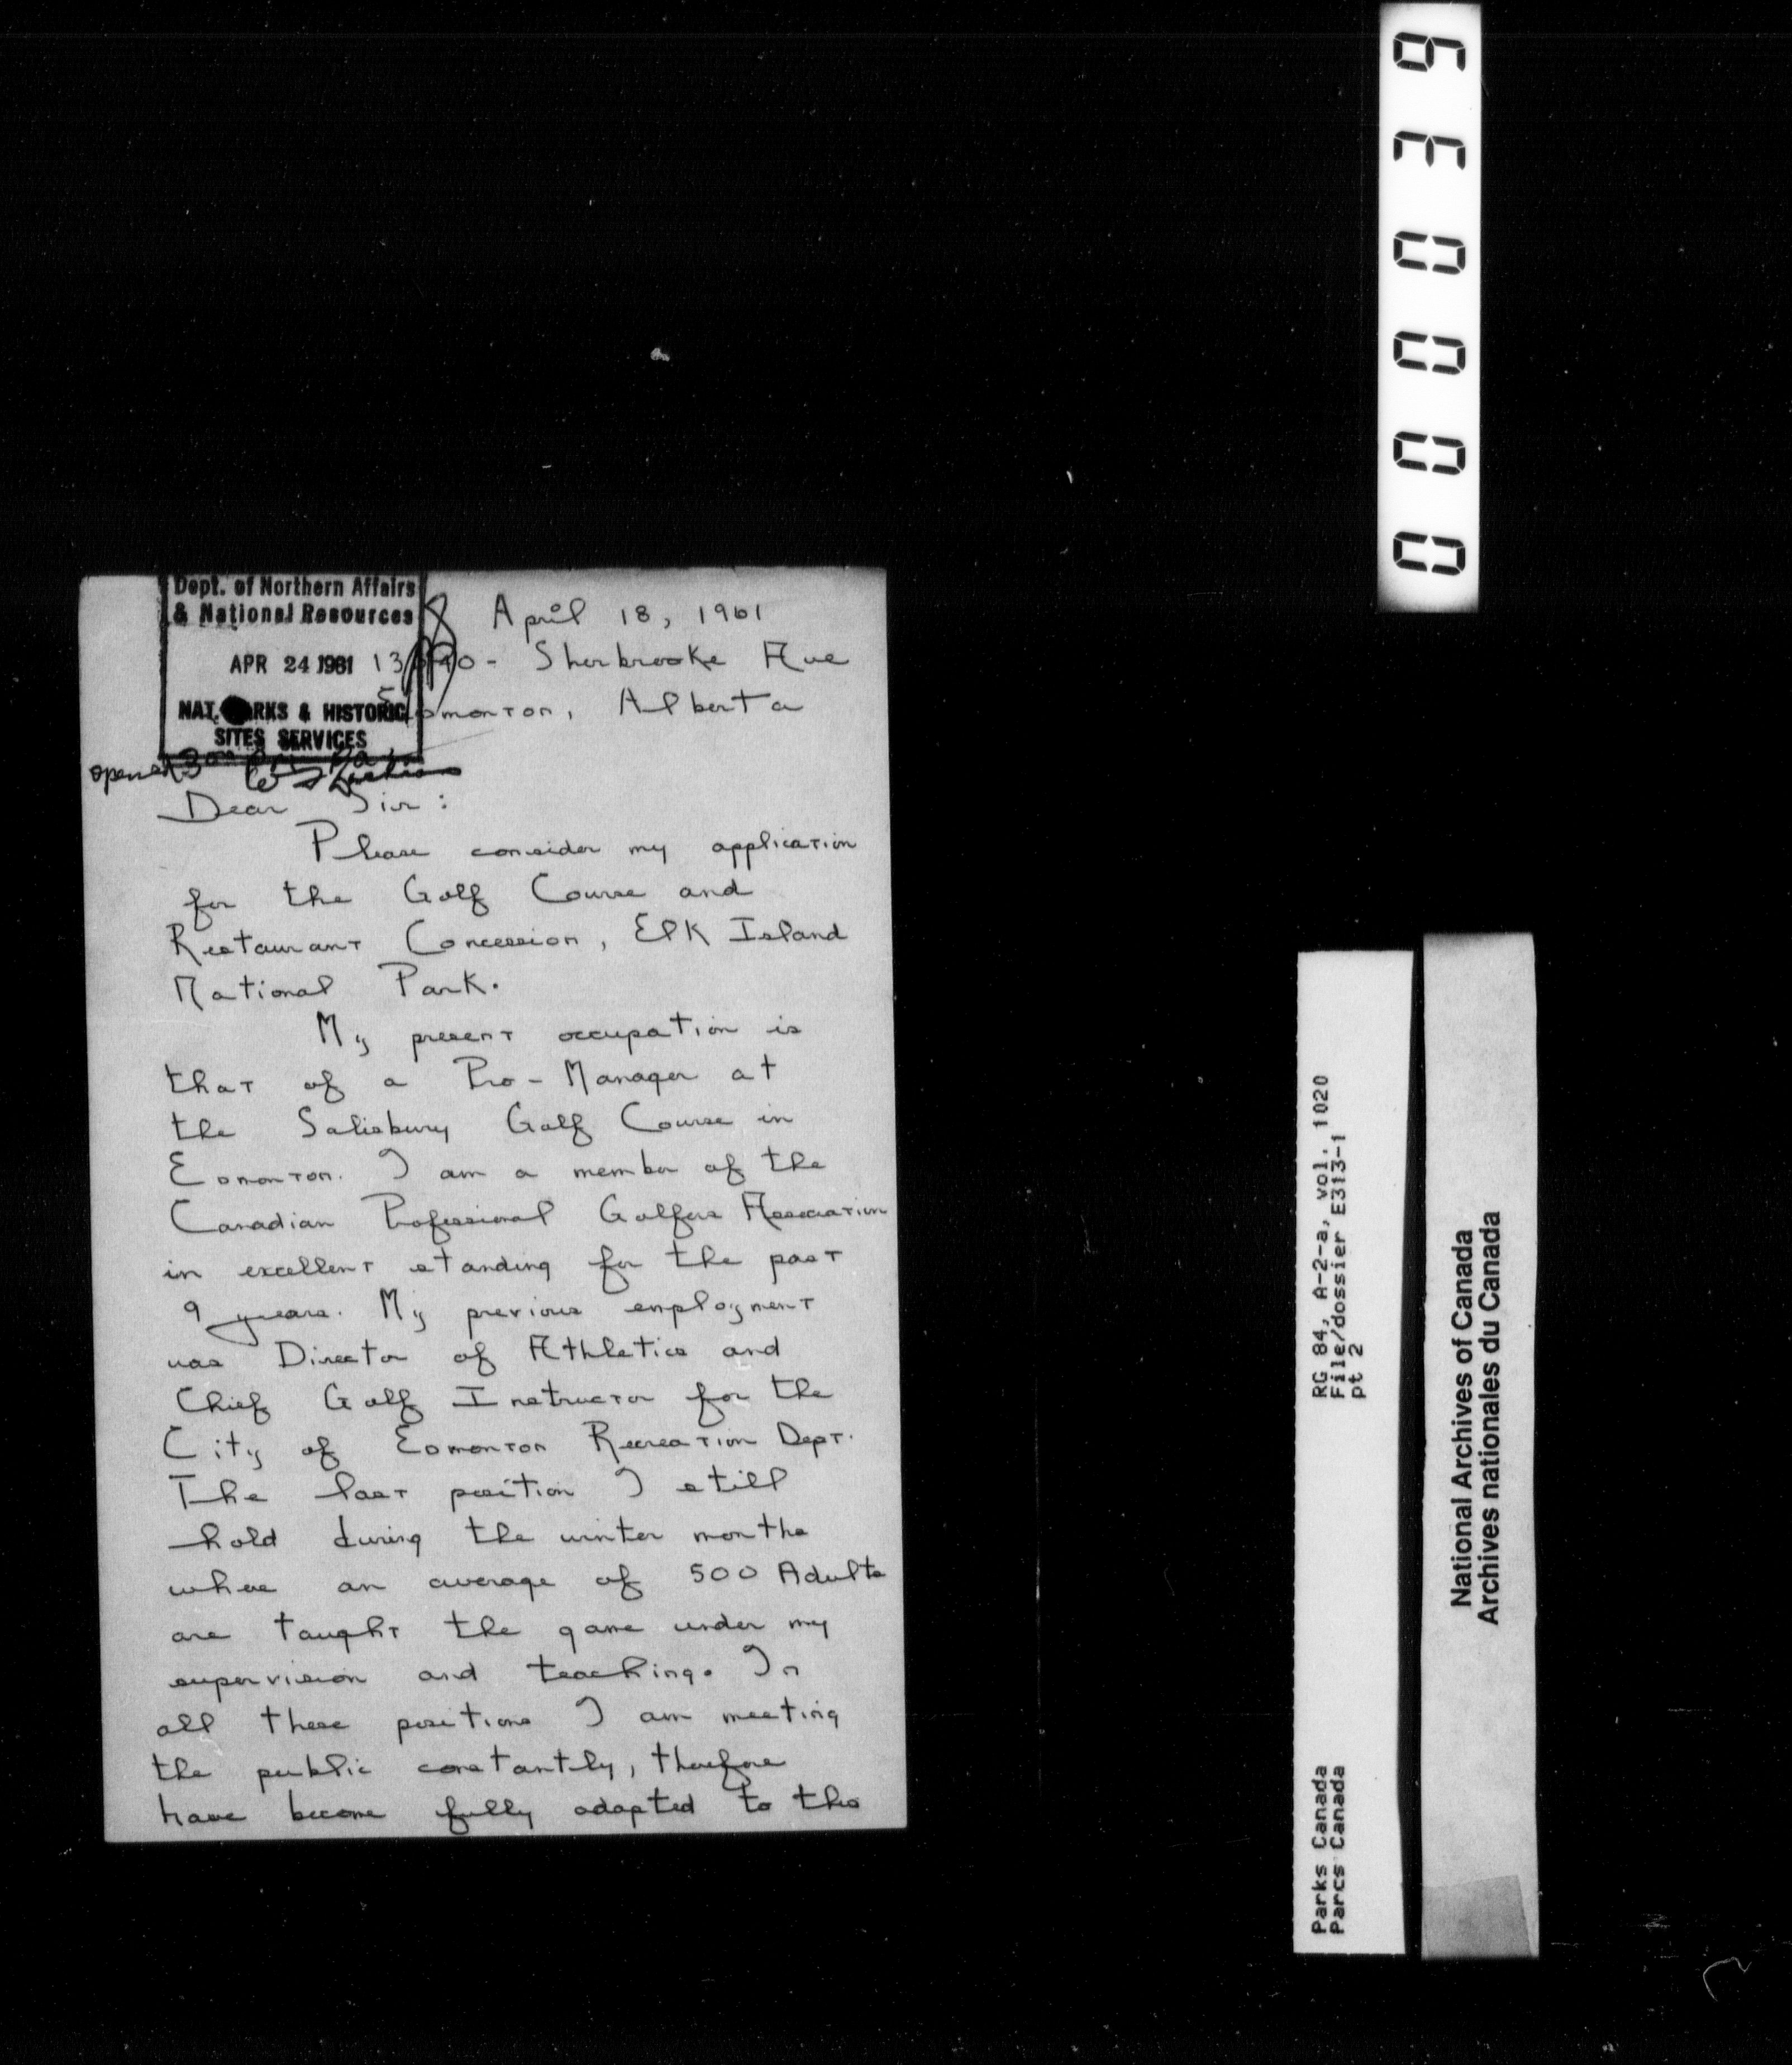 Dept. of Northern Affairs
& National Resources
APR 24 1961
NAT. PARKS & HISTORIC
SITES SERVICES
opened 3
April 18, 1961
Sherbrooke Ave
Edmonton, Alberta
Dear Sir:
Please consider my application
for the Golf Course and
Restaurant Concession, Elk Island
National Park.
My present occupation is
that of a Pro-Manager at
the Salisbury Golf Course in
Edmonton. I am a member of the
Canadian Professional Golfers Association
in excellent standing for the past
9 years. My previous employment
was Director of Athletics and
Chief Golf Instructor for the
City of Edmonton Recreation Dept.
The last position I still
hold during the winter months
where an average of 500 Adults
are taught the game under my
supervision and teaching. In
all these positions I am meeting
the public constantly, therefore
have become fully adapted to this
000039
RG 84, A-2-a, vol. 1020
File/dossier E313-1
pt 2
Parks Canada
Parcs Canada
National Archives of Canada
Archives nationales du Canada